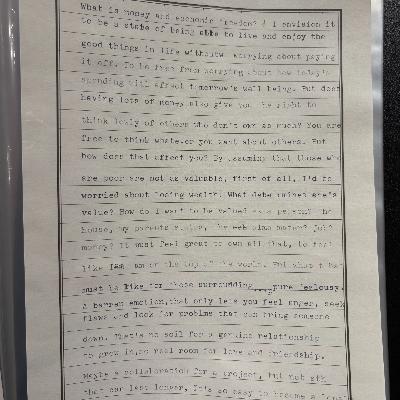 What is money and economic freedom? I envision it
to be a state of being able to live and enjoy the
good things in life without worrying about paying
it off. To be free from worrying about how today's
spending will affect tomorrow's well being. But does
having lots of money also give you the right to
think lowly of others who don't own as much? You are
free to think whatever you want about others. But
how does that affect you? By assuming that those who
are poor are not as valuable, first of all, I'd be
worried about losing wealth. What determines one's
value? How do I want to be valued as a person? The
house, my parents status, the
money? It must feel great to own all that, to feel
like on the top of the world. But what it
must be like for those surrounding....pure jealousy.
A barren emotion, that only lets you feel anger, seek
flaws and look for problems that can bring someone
down. That's no soil for a genuine relationship
to grow in, no real room for love and friendship.
Maybe a collaboration for a project, but not
that can last longer. It's so easy to become a